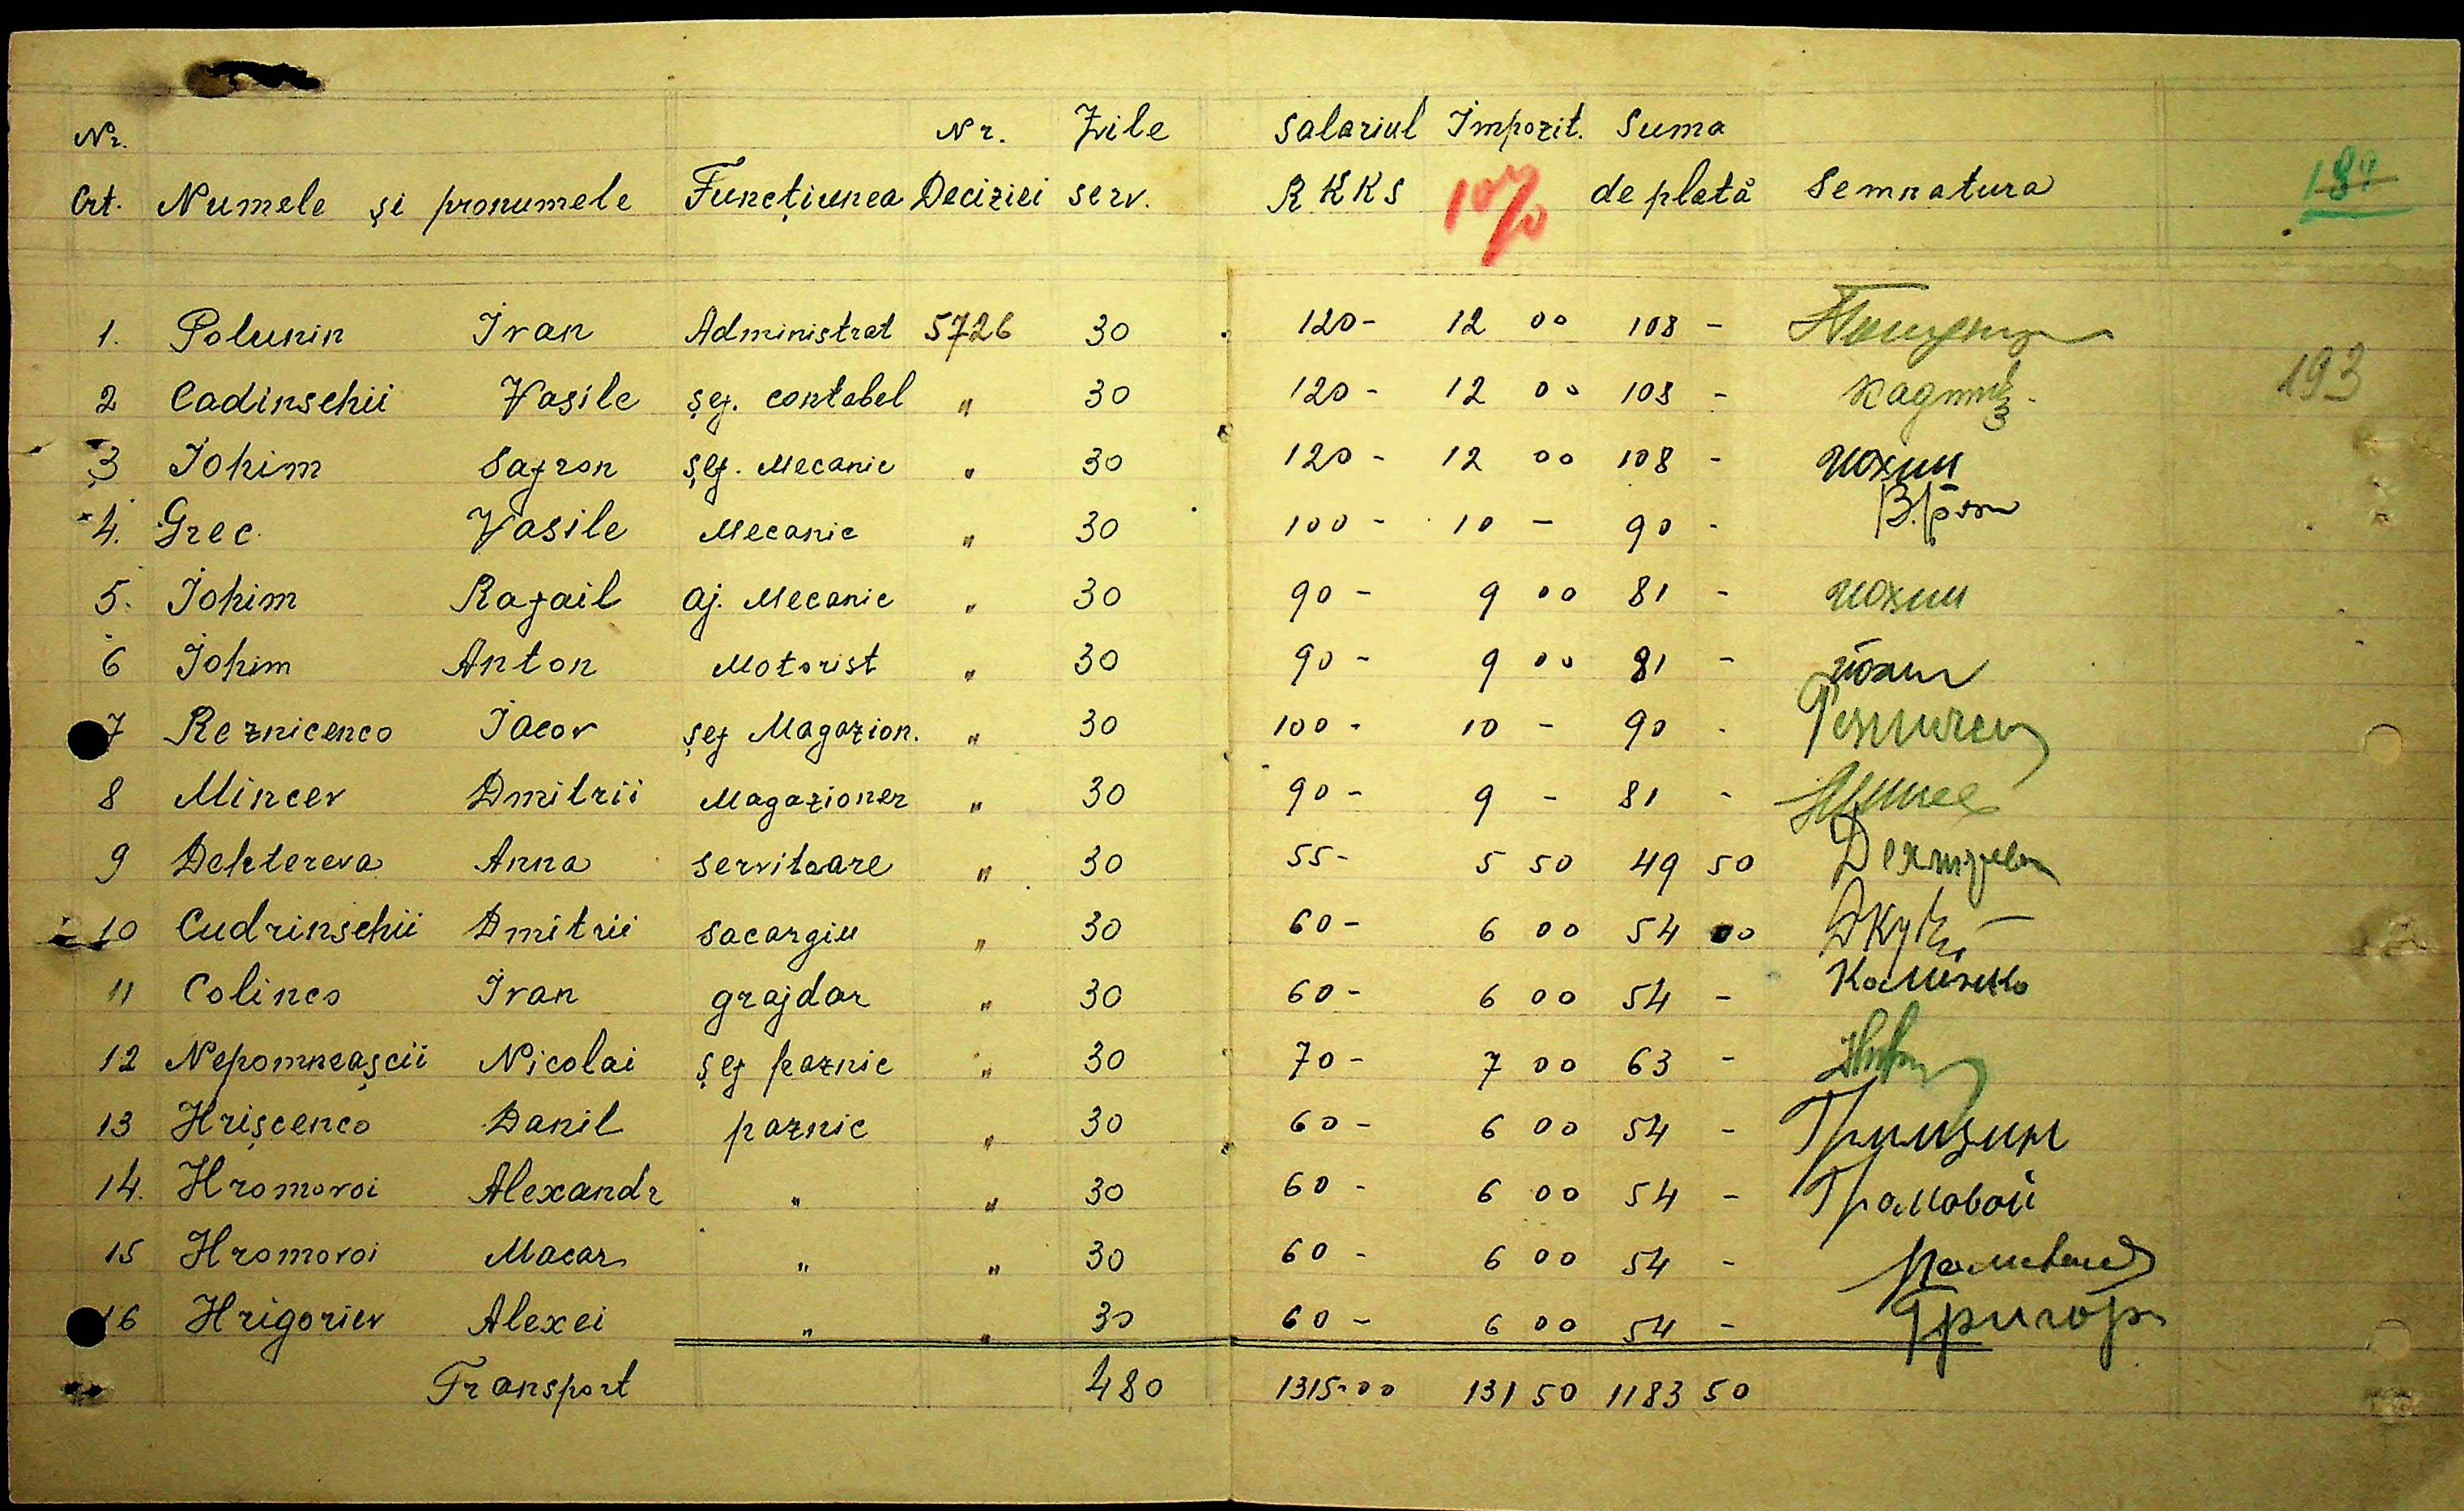 Nr. Nr. Zile Salariul Impozit. Suma
Crt. Numele și pronumele Funcțiunea Deciziei serv. RKKS 10% de plată Semnatura
1. Polunin Ivan Administrat 5726 30 120- 12 00 108 -
193
2 Cadinschii Vasile șef. contabel " 30 120- 12 00 108 -
3 Iohim Safron șef. Mecanic " 30 120- 12 00 108 - иохим
4. Grec Vasile Mecanic " 30 100- 10 - 90 -
5. Iohim Rafail aj. Mecanic " 30 90- 9 00 81 - иохим
6 Iohim Anton Motorist " 30 90- 9 00 81 -
7 Reznicenco Iacov șef Magazion. " 30 100- 10 - 90 -
8 Mincev Dmitrii Magazioner " 30 90- 9 - 81 -
9 Dehtereva Anna servitoare " 30 55- 5 50 49 50
10 Cudrinschii Dmitrii sacargiu " 30 60- 6 00 54 00
11 Colinco Ivan grajdar " 30 60- 6 00 54 - Калинко
12 Nepomneașcii Nicolai șef paznic " 30 70- 7 00 63 -
13 Hrișcenco Danil paznic " 30 60- 6 00 54 -
14. Hromovoi Alexandr " " 30 60- 6 00 54 - Громовой
15 Hromovoi Macar " " 30 60- 6 00 54 -
16 Hrigoriev Alexei " " 30 60- 6 00 54 - Григор
Transport 480 1315-00 131 50 1183 50